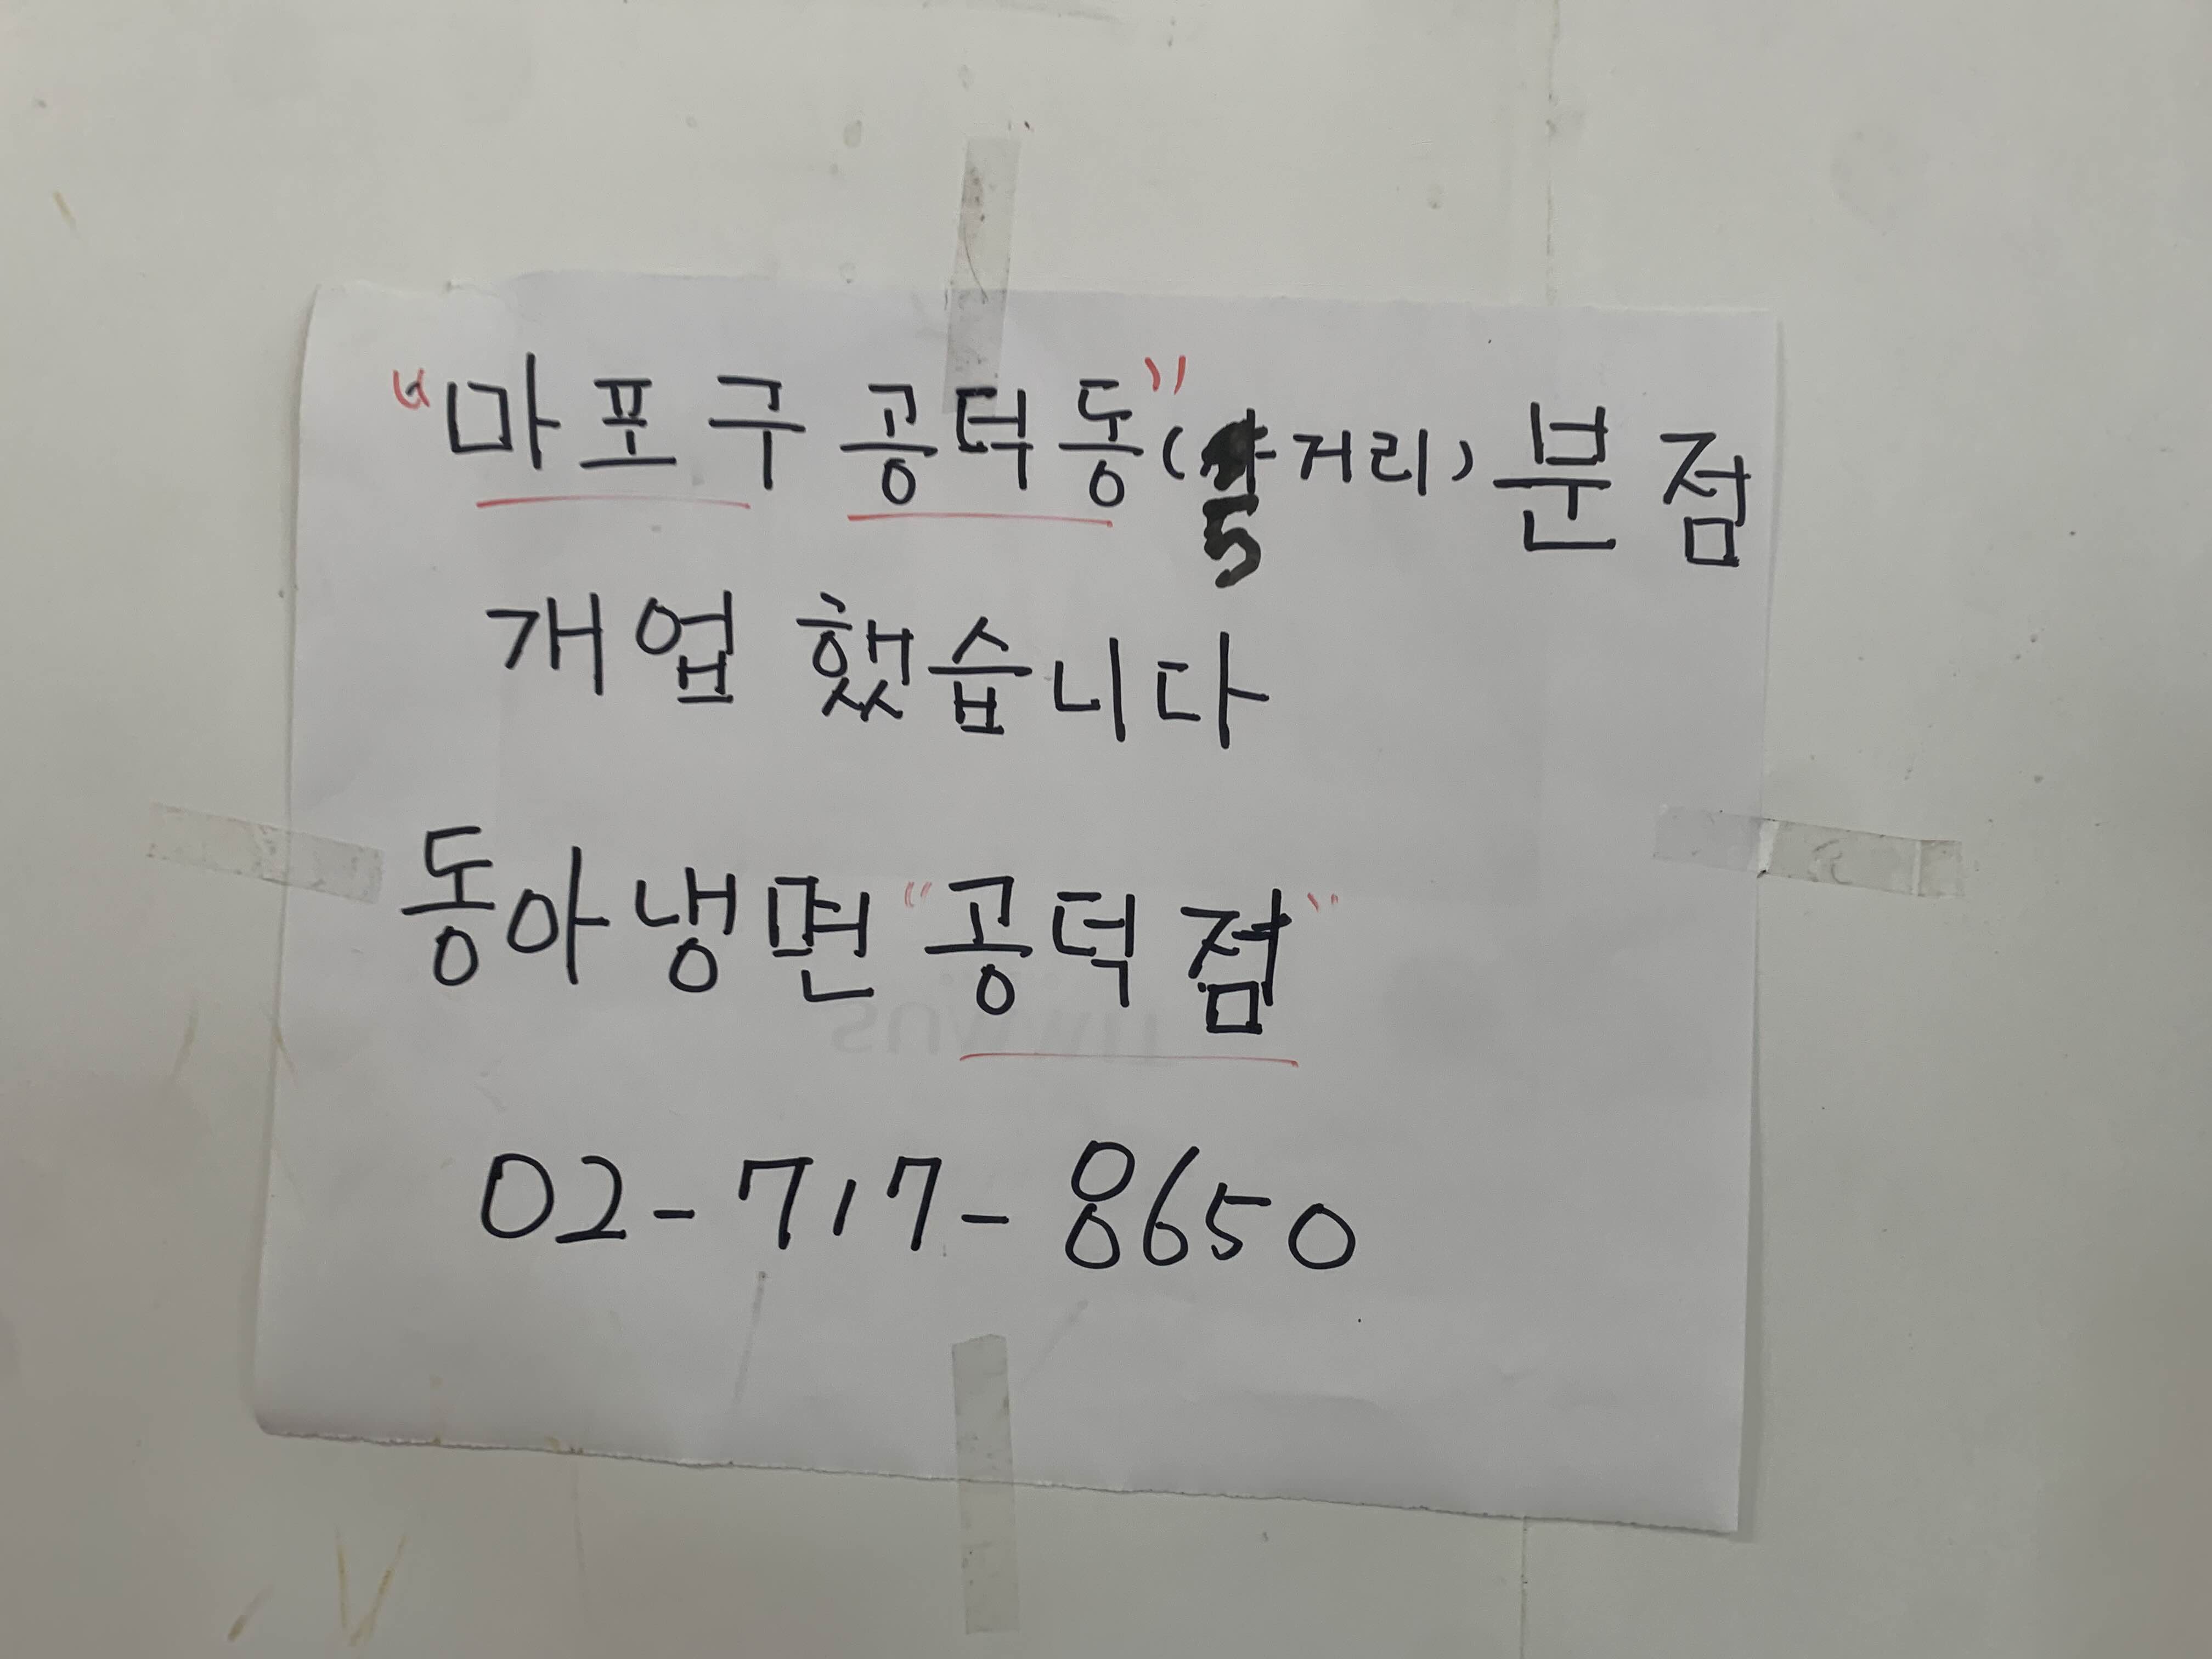 "마포구 공덕동"(5거리) 분점
개업 했습니다
동아냉면 "공덕점"
02-717-8650